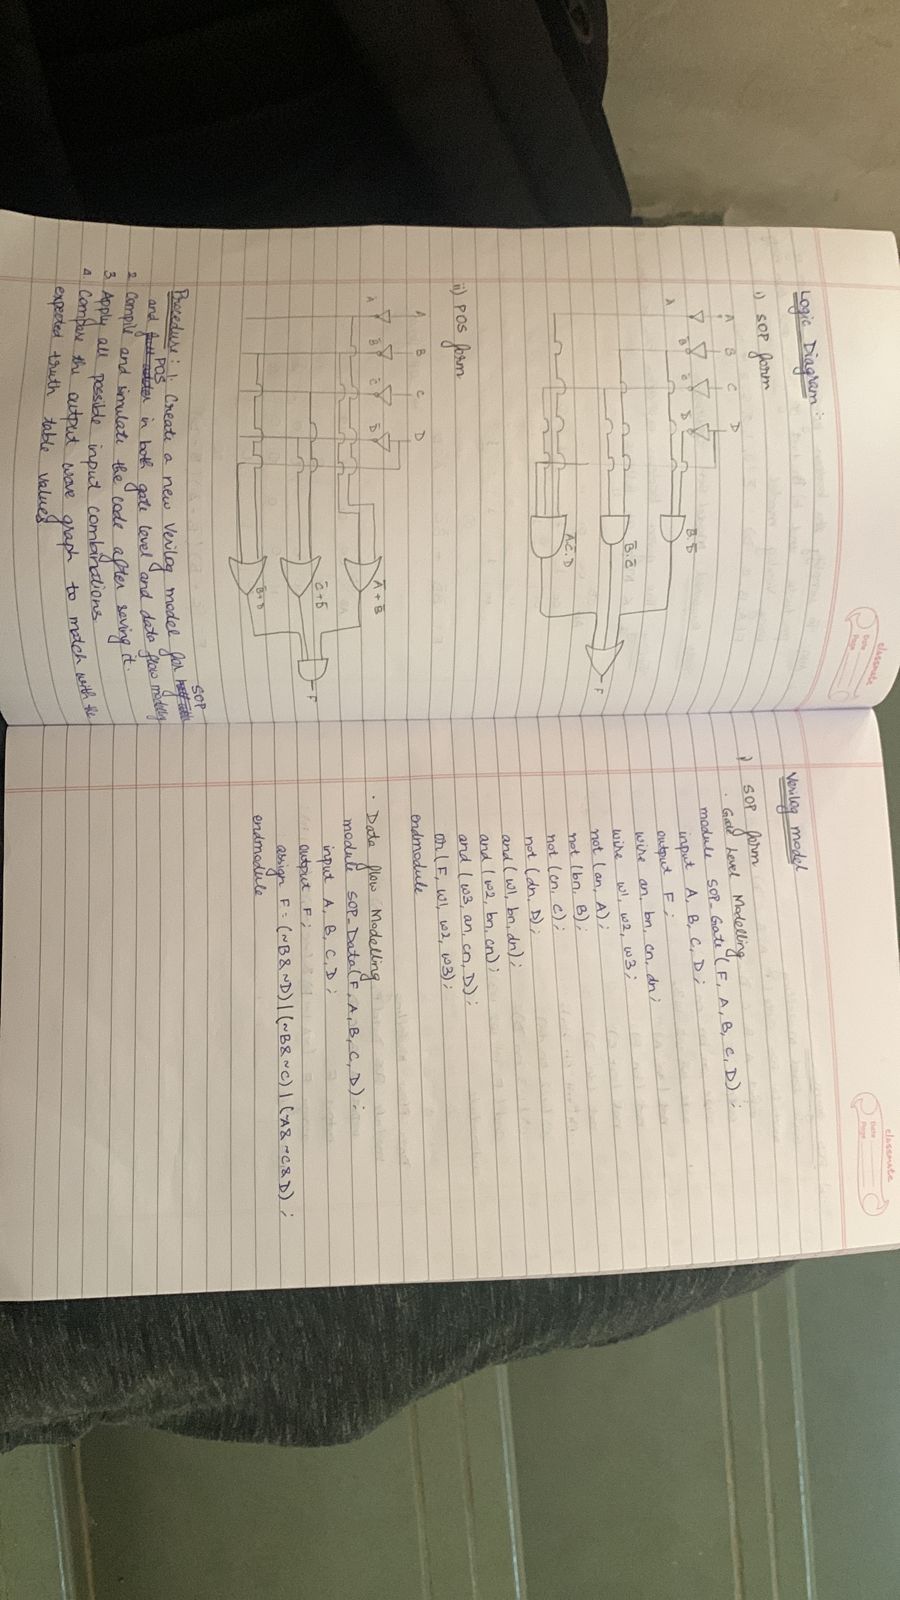 classmate
Date
Page
Logic Diagram:
i) SOP form
A B C D
A B̅ C̅ D̅
B̅.D̅
B̅.C̅
F
A̅.C̅.D
ii) POS form
A B C D
A̅ B̅ C̅ D̅
A̅+B̅
C̅+D̅
F
B̅+D
Procedure: 1. Create a new Verilog model for SOP
and POS in both gate level and data flow modelling
2 Compile and simulate the code after saving it.
3 Apply all possible input combinations
4. Compare the output wave graph to match with the
expected truth table values
classmate
Date
Page
Verilog model
i) SOP form
· Gate Level Modelling
module SOP_Gate (F, A, B, C, D);
input A, B, C, D;
output F;
wire an, bn, cn, dn;
wire w1, w2, w3;
not (an, A);
not (bn, B);
not (cn, C);
not (dn, D);
and (w1, bn, dn);
and (w2, bn, cn);
and (w3, an, cn, D);
or (F, w1, w2, w3);
endmodule
· Data flow Modelling
module SOP_Data(F, A, B, C, D);
input A, B, C, D;
output F;
assign F = (~B & ~D) | (~B & ~C) | (~A & ~C & D);
endmodule